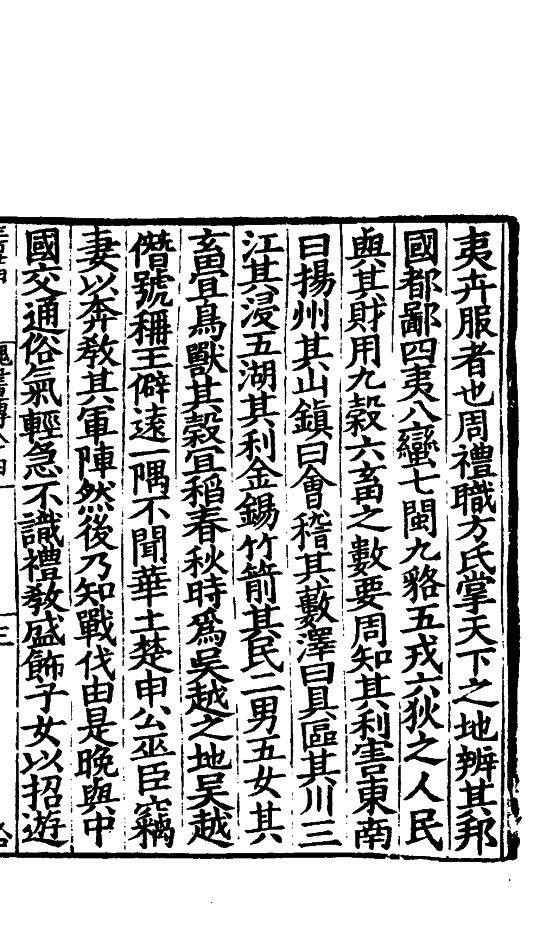 夷卉服者也周禮職方氏掌天下之地辨其邦
國都鄙四夷八蠻七閩九貉五戎六狄之人民
與其財用九穀六畜之數要周知其利害東南
曰揚州其山鎮曰會稽其藪澤曰具區其川三
江其浸五湖其利金錫竹箭其民二男五女其
畜宜鳥獸其穀宜稻春秋時爲吳越之地吳越
僣號稱王僻遠一隅不聞華土楚申公巫臣竊
妻以奔敎其軍陣然後乃知戰伐由是晚與中
國交通俗氣輕急不識禮敎盛飾子女以招遊
三